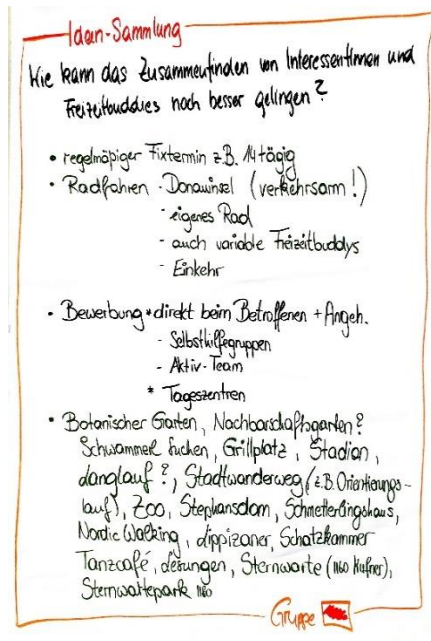 Ideen-Sammlung
Wie kann das Zusammenfinden von InteressentInnen und
Freizeitbuddies noch besser gelingen?
• regelmäßiger Fixtermin z.B. 14tägig
• Radfahren - Donauinsel (verkehrsarm!)
- eigenes Rad
- auch variable Freizeitbuddys
- Einkehr
• Bewerbung * direkt beim Betroffenen + Angeh.
- Selbsthilfegruppen
- Aktiv-Team
* Tageszentren
• Botanischer Garten, Nachbarschaftsgarten?
Schwammerl suchen, Grillplatz, Stadion,
Langlauf?, Stadtwanderweg (z.B. Orientierungs-
lauf), Zoo, Stephansdom, Schmetterlingshaus,
Nordic Walking, Lippizaner, Schatzkammer
Tanzcafé, Lesungen, Sternwarte (1160 Kufner),
Sternwartepark 1160
Gruppe